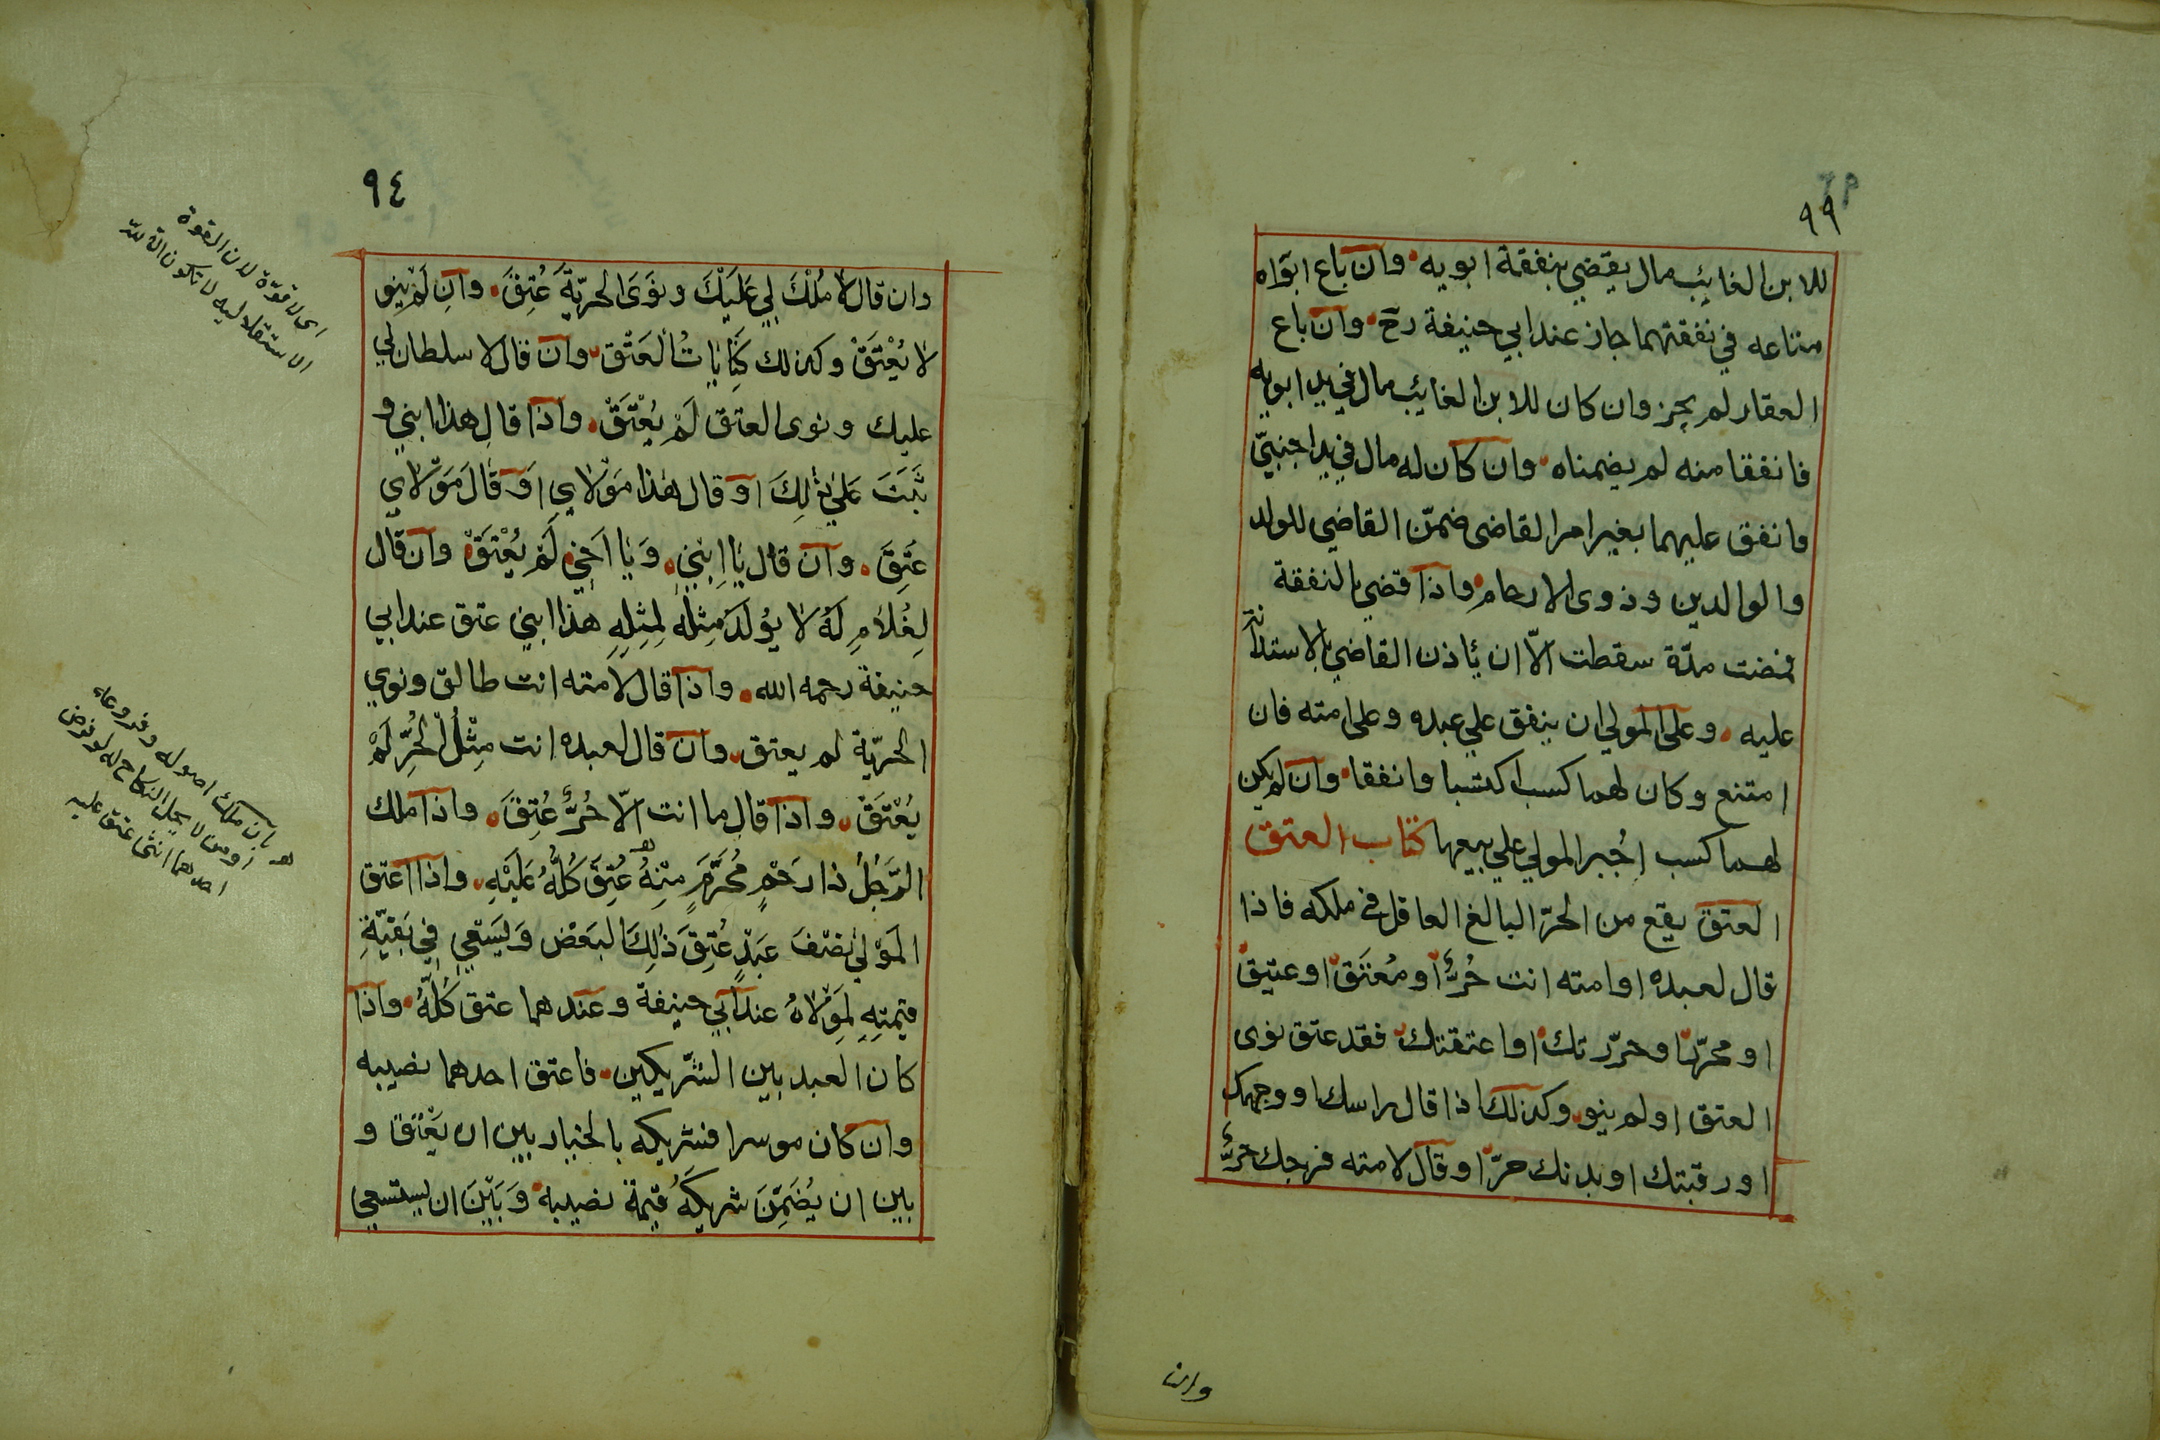 ٩٩
للابن الغائب مال يقضي بنفقة ابويه وان باع ابواه
متاعه في نفقتهما جاز عند ابي حنيفة رح وان باع
العقار لم يجز وان كان للابن الغايب مال في يد ابويه
فانفقا منه لم يضمناه وان كان له مال في يد اجنبيّ
فانفق عليهما بغير امر القاضى ضمّن القاضي للولد
والوالدين وذوى الارحام واذا قضي بالنفقة
فمضت مدّة سقطت الّا ان يأذن القاضي بالاستدانة
عليه وعلى المولي ان ينفق علي عبده وعلى امته فان
امتنع وكان لهما كسب اكتسبا وانفقا وان لم يكن
لهما كسب اُجبر المولي علي بيعها كتاب العتق
العتق يقع من الحرّ البالغ العاقل في ملكه فاذا
قال لعبده او امته انت حُرٌّ او مُعْتَق او عتيق
او محرّر او حرّرتك او اعتقتك فقد عتق نوى
العتق او لم ينو وكذلك اذا قال راسك او وجهك
او رقبتك او بدنك حرّ او قال لامته فرجك حرٌّ
وان
٩٤
وان قال لا مُلْكَ لِي عَلَيْكَ ونَوَى الحرّيّةَ عُتِقَ وَانِ لَمْ يَنِو
لا يُعْتَقْ وكذلك كِنَايَاتُ العَتْق وان قال لا سلطان لي
عليك ونوى العتق لَمْ يُعْتَقْ واذا قال هذا ابني و
ثَبَتَ عَلَي ذٰلِكَ او قال هٰذا مَوْلاي اَو قَالَ مَوْلاي
عَتِقَ وان قال يٰا اِبْنِي وَيٰا اَخِي لَمْ يُعْتَقْ وان قال
لِغُلاَمٍ لَهُ لا يُولَدُ مِثْلُهُ لِمِثْلِهِ هذا ابني عتق عند ابي
حنيفة رحمه الله واذا قال لامته انت طالق ونوي
الحرّيّة لم يعتق وان قال لعبده انت مِثْلُ الْحُرِّ لَمْ
يُعْتَقْ واذا قال ما انت الّا حُرٌّ عُتِقَ واذا ملك
الرَّجُلُ ذا رَحْمٍ مُحَرَّمٍ مِنْهُ عُتِقَ كُلُّهُ عَلَيْهِ واذا اعتق
المَوْلٰي نِصْفَ عَبْدٍ عُتِقَ ذٰلِكَ البَعْض وَيَسْعٰي فِي بَقِيّةِ
قيمتِهِ لِمَوْلاهُ عند ابي حنيفة وعندهما عتق كُلُّهُ واذا
كان العبد بين الشّريكين فاعتق احدهما نصيبه
وان كان موسرا فشريكه بالخيار بين ان يَعْتِقَ و
بين ان يُضَمِّنَ شريكَهُ قيمة نصيبه وَبَيْنَ ان يستسعي
اى لا قوّة لان القوة
الاستقلاليه لا تكون الا لله
هو بان ملك اصوله وفروعه
او من لا يحل النكاح له لو فرض
احدهما انثى عتق عليه